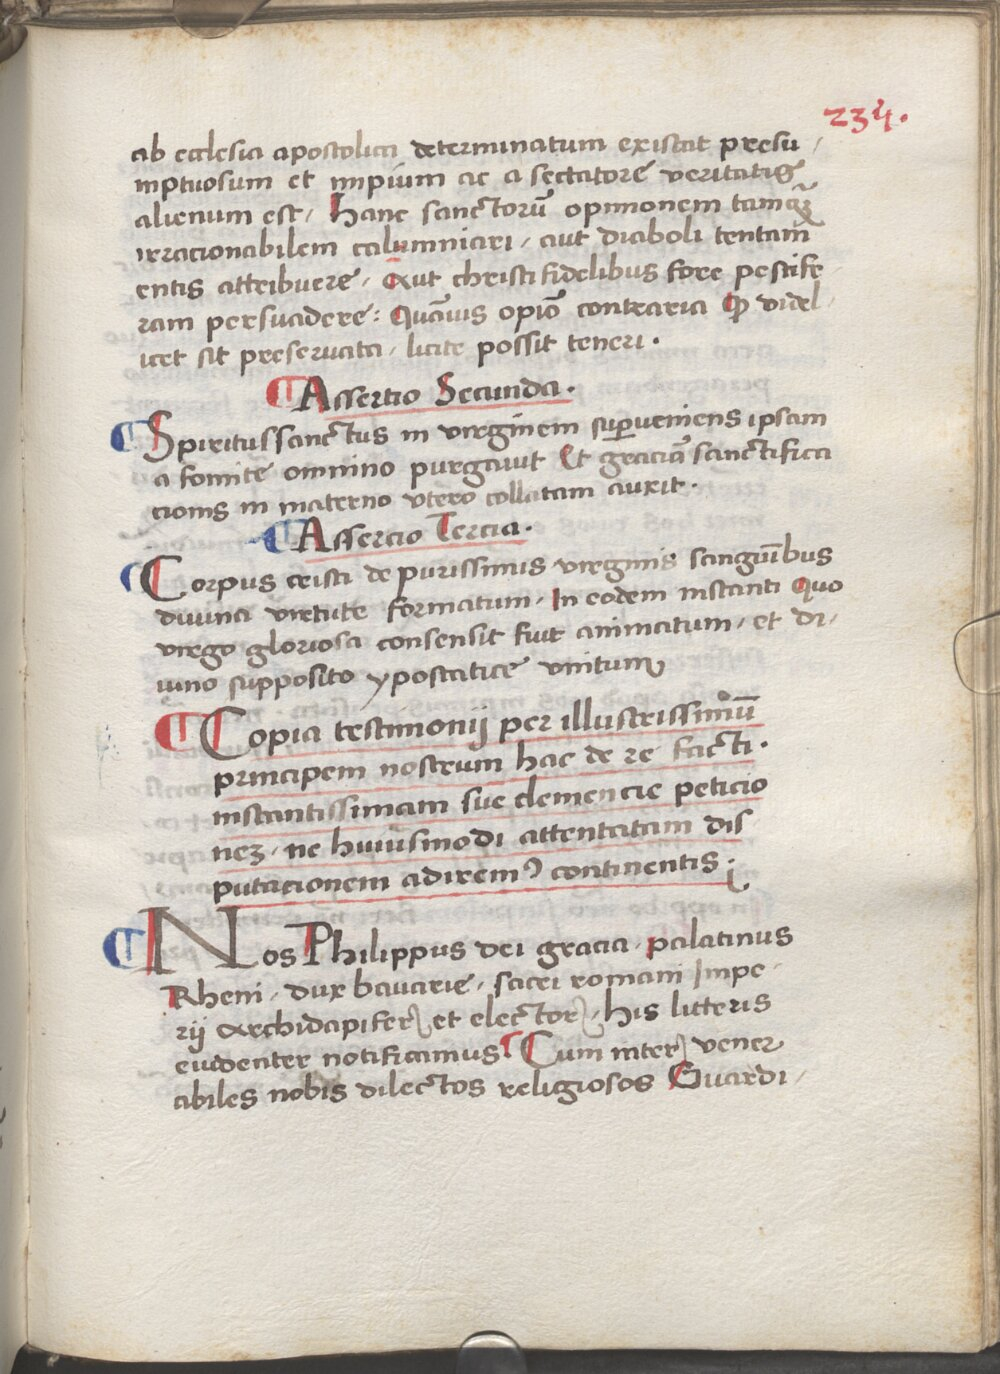 234.
ab ecclesia apostolica determinatum existat presu/
mptuosum et impium ac a sectatore veritatis
alienum est / Hanc sanctorū opinionem tamqȝ
irracionabilem calumniari / aut diaboli tentam
entis attribuere / Aut christifidelibus fore pestife
ram persuadere : Quāuis opīo contraria ꝙ videl/
icet sit preseruata / licite possit teneri .
¶ Assertio Secunda .
¶ Spiritussanctus in virginem suꝑueniens ipsam
a fomite omnino purgauit Et graciā sanctifica
cionis in materno vtero collatam auxit .
¶ Assercio Tercia .
¶ Corpus cristi de purissimis virginis sanguībus
diuina virtute formatum / In eodem instanti Quo
virgo gloriosa consensit fuit animatum / et di/
uino supposito ypostatice vnitum
¶ Copia testimonij per illustrissimū
principem nostrum hac de re facti .
instantissimam sue clemencie peticio
neȝ / ne huiusmodi attentatam dis
putacionem adirem⁹ continentis .
¶ Nos Philippus dei gracia / palatinus
Rheni / dux bauarie / sacri romani Impe/
rij archidapifer / et elector / his litteris
euidenter notificamus ¶ Cum inter vener
abiles nobis dilectos religiosos Guardi/